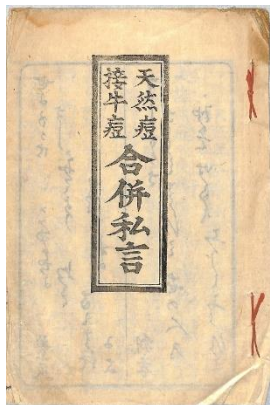 天然痘
接牛痘
合併私言